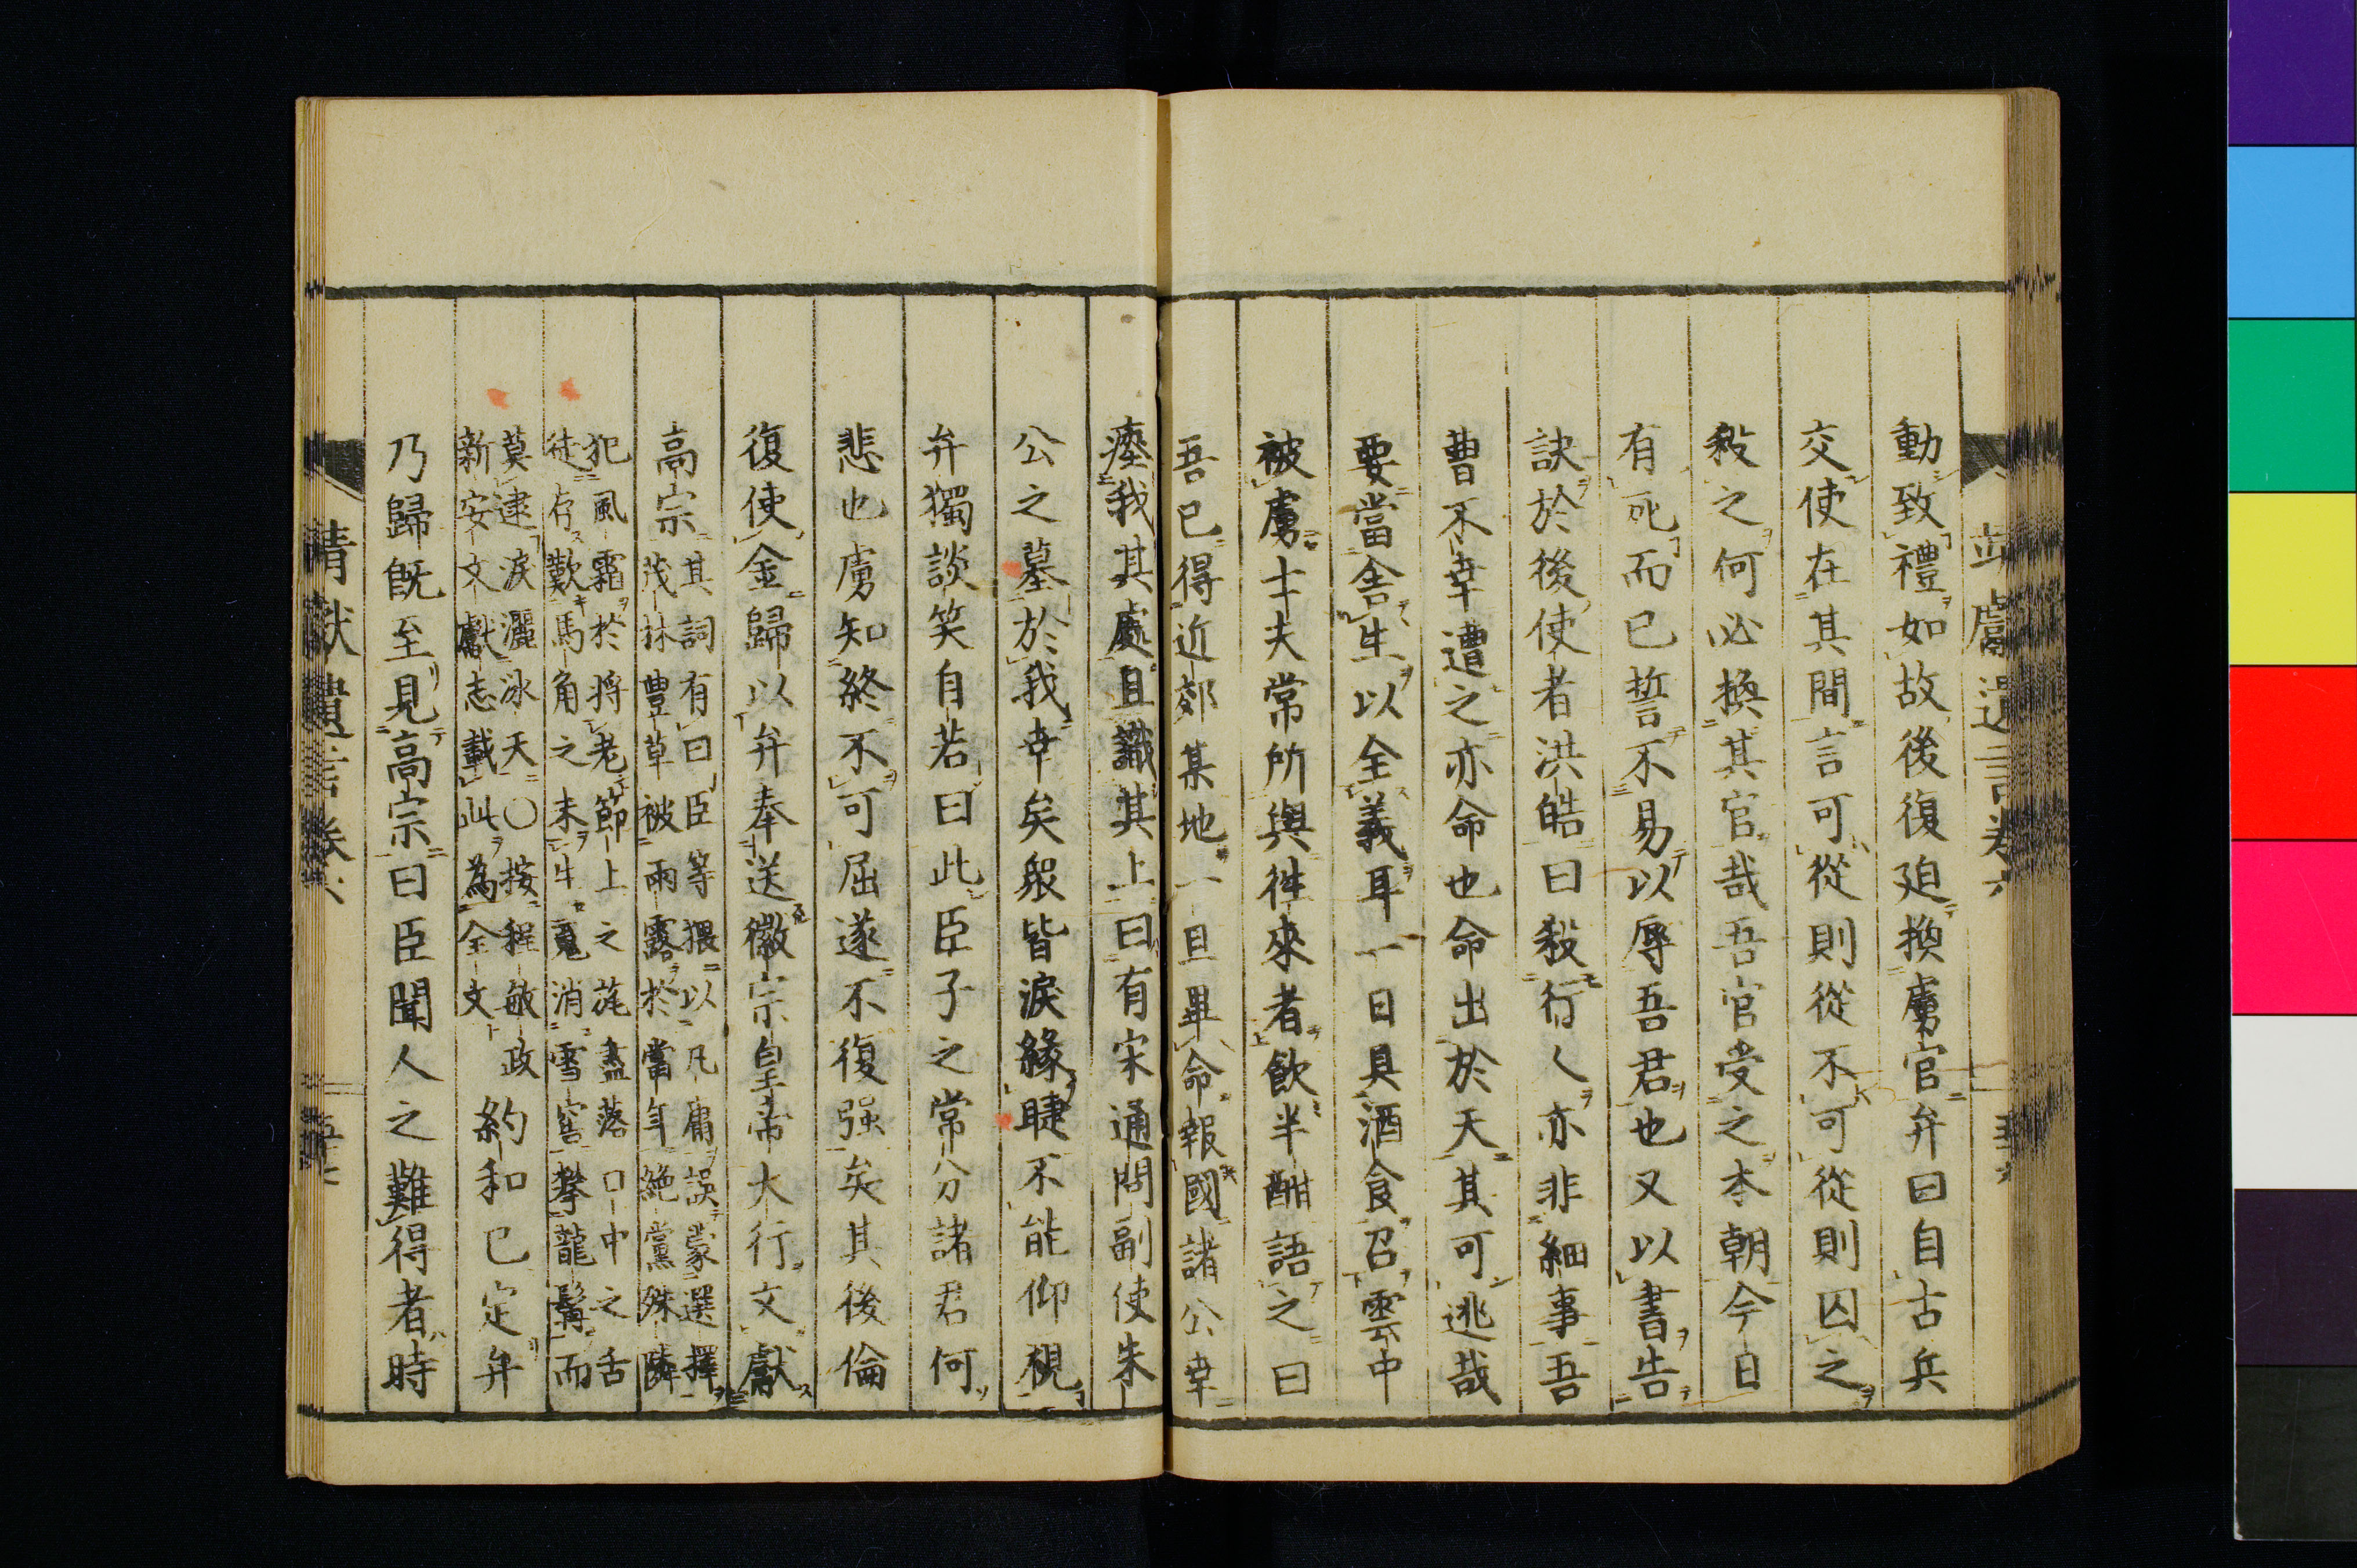 動致禮如故後復廹換虜官弁曰自古兵
交使在其間言可從則從不可從則囚之
殺之何必換其官哉吾官受之本朝今日
有死而已誓不易以辱吾君也又以書告
訣於後使者洪皓曰殺行人亦非細事吾
曹不幸遭之亦命也命出於天其可逃哉
要當舍生以全義耳一日具酒食召雲中
被虜士夫常所與徃來者飲半酣語之曰
吾已得近郊某地一旦畢命報國諸公幸
瘞我其處且識其上曰有宋通問副使朱
公之墓於我幸矣衆皆淚緣睫不能仰視
弁獨談笑自若曰此臣子之常分諸君何
悲也虜知終不可屈遂不復强矣其後倫
復使金歸以弁奉送徽宗皇帝大行文獻
高宗
其詞有曰臣等猥以凡庸誤蒙選擇
茂林豊草被雨露於當年絶黨殊隣
犯風霜於將老節上之旄盡落口中之舌
徒存歎馬角之未生䰟消雪窖攀龍髯而
莫逮淚灑冰天○按程敏政
新安文獻志載此為全文
約和已定弁
乃歸旣至見高宗曰臣聞人之難得者時
靖獻遺言卷六